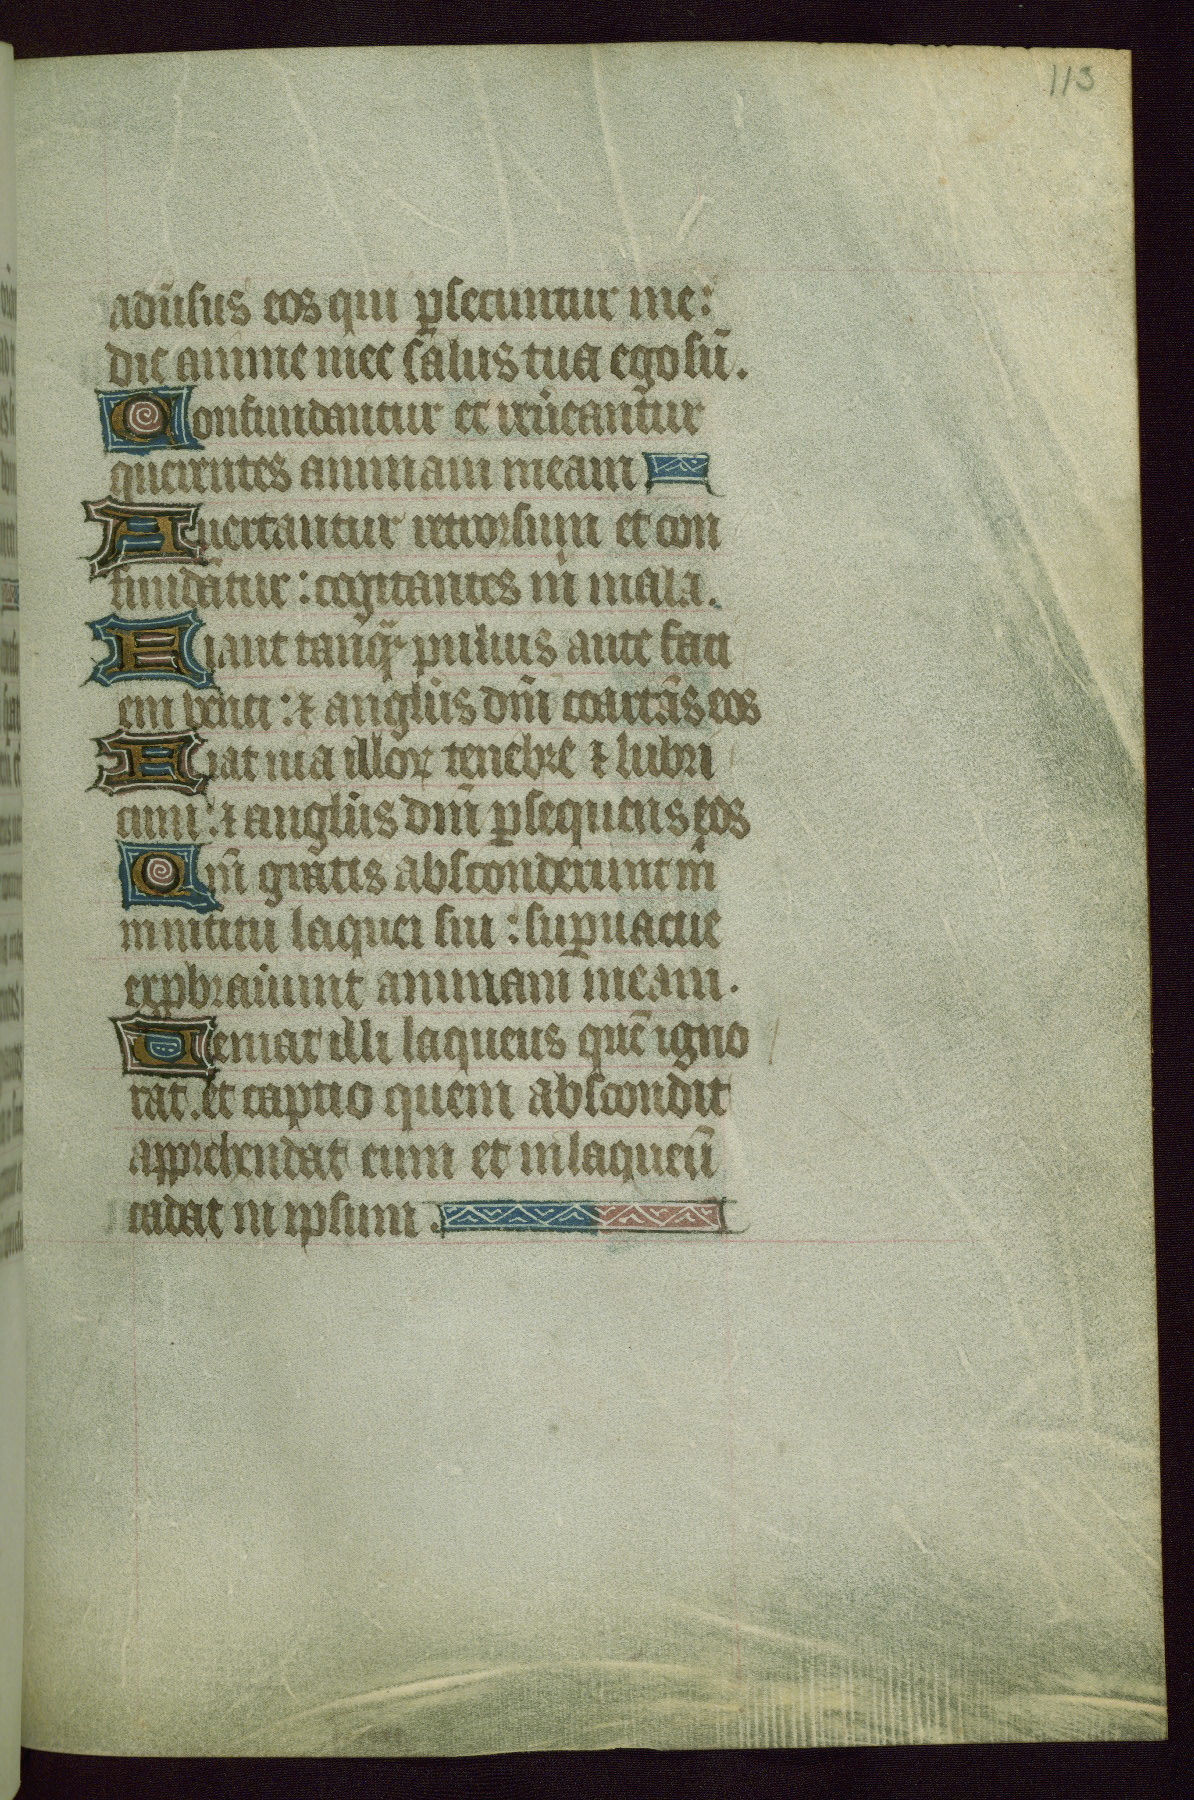 113
adũsus eos qui ꝑsecuntur me:
dic anime mee salus tua ego sũ.
Confundantur et reũeantur
querentes animam meam
Auertantur retrorsum et con
fundãtur: cogitantes m̃ mala.
Fiant tanq̃ puluis ante faci
em venti: ⁊ anglũs dñi coartãs eos
Fiat uia illoꝝ tenebre ⁊ lubri
cum: ⁊ anglũs dñi ꝑsequens eos
Qm̃ gratis absconderunt m̃
interitũ laquei sui: suꝑuacue
exprobrauerunt animam meam.
Ueniat illi laqueus quẽ igno
rat. et captio quem abscondit
apprehendat eum et in laqueũ
cadat in ipsum.